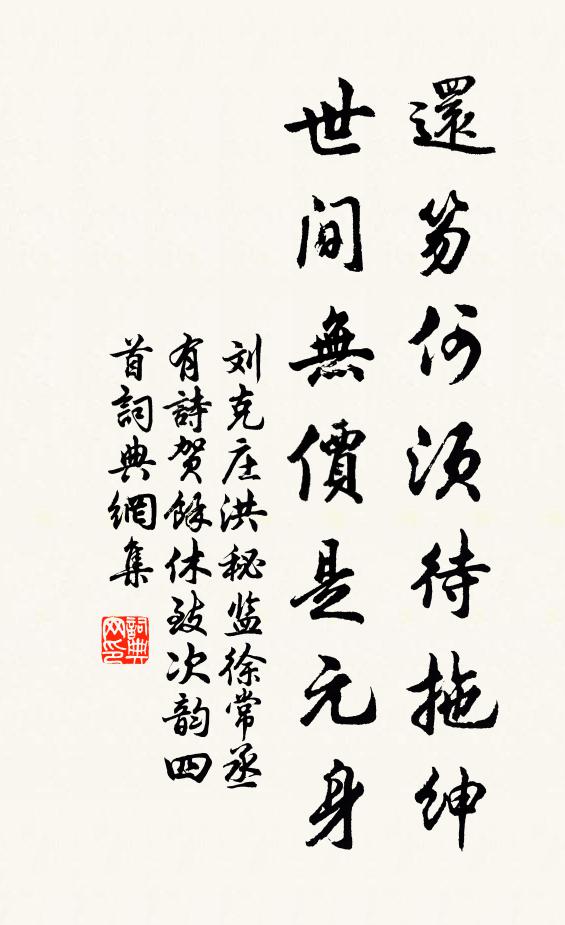 還笏何須待拖紳
世間無價是元身
刘克庄洪秘监徐常丞
有詩賀餘休致次韵四
首詞典網集
詞典网印